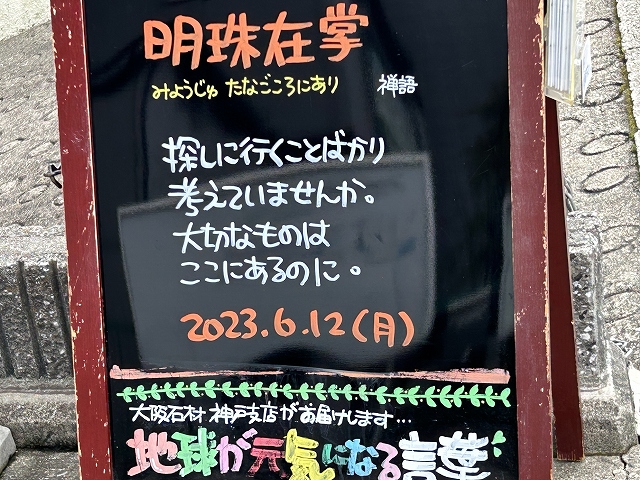 明珠在掌
みようじゅ たなごころにあり 禅語
探しに行くことばかり
考えていませんか。
大切なものは
ここにあるのに。
2023.6.12(月)
大阪石材 神戸支店がお届けします…
地球が元気になる言葉